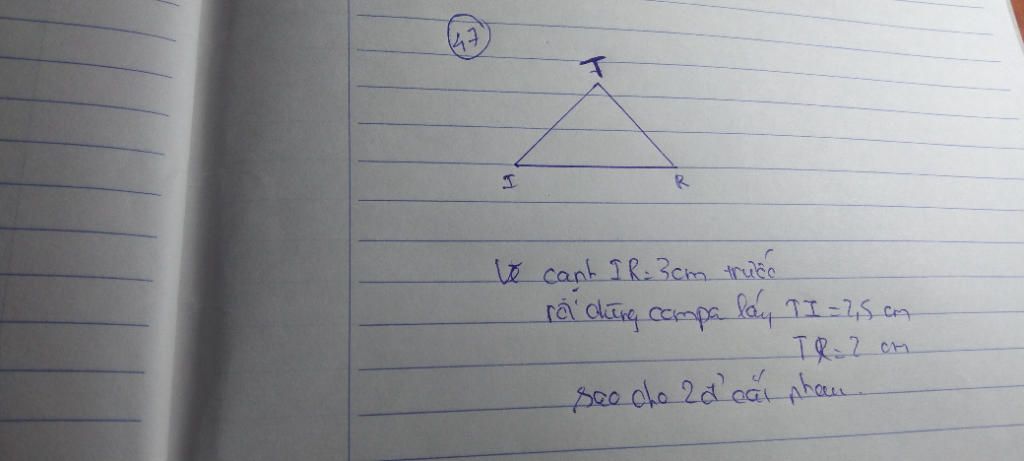 47
T
I R
Vẽ cạnh IR = 3cm trước
rồi dùng compa lấy TI = 2,5 cm
TR = 2 cm
sao cho 2 đ' cắt nhau.